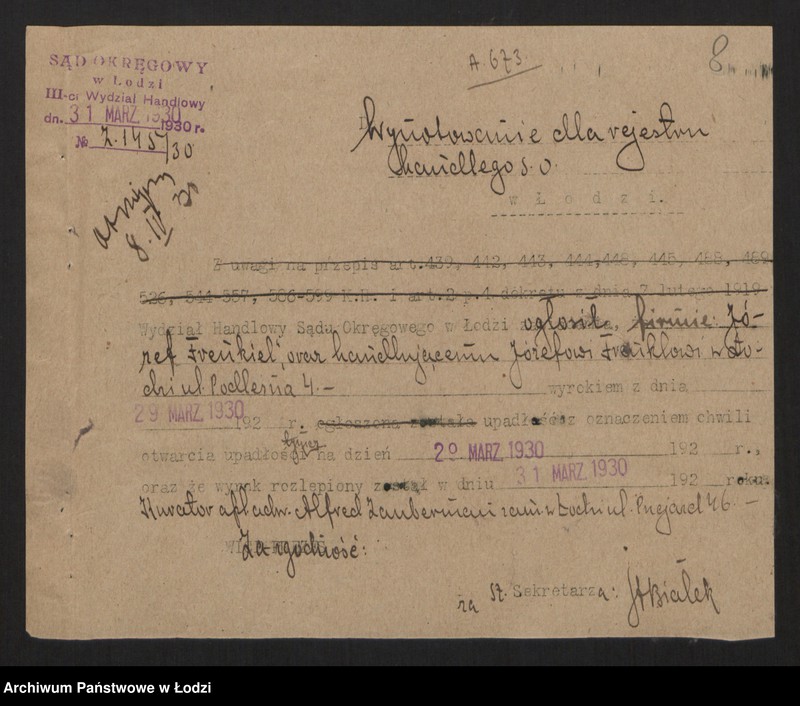 A. 673
8
SĄD OKRĘGOWY
w Łodzi
III-ci Wydział Handlowy
dn. 31 MARZ. 1930 1930 r.
№ Z.145/30
8.IV 30
Wynotowanie dla rejestru
handlego s. o.
w Łodzi.
Z uwagi na przepis art. 439, 442, 443, 444, 448, 445, 488, 489
526, 544-557, 586-599 K.H. i art. 2 p. 4 dekretu z dnia 7 lutego 1919
Wydział Handlowy Sądu Okręgowego w Łodzi ogłosił, firmie: Jó-
zef Frenkiel, oraz handlującemu Józefowi Frenklowi w Ło-
dzi ul. Podleśna 4.- wyrokiem z dnia
29 MARZ. 1930 192 r. ogłoszona została upadłość z oznaczeniem chwili
otwarcia upadłości na dzień 29 MARZ. 1930 192 r.,
oraz że wyrok rozlepiony został w dniu 31 MARZ. 1930 192 roku.
Kurator apl. adw. Alfred Zauberman zam. w Łodzi ul. 46.-
Za zgodność:
za St. Sekretarza: StBiałek
Archiwum Państwowe w Łodzi